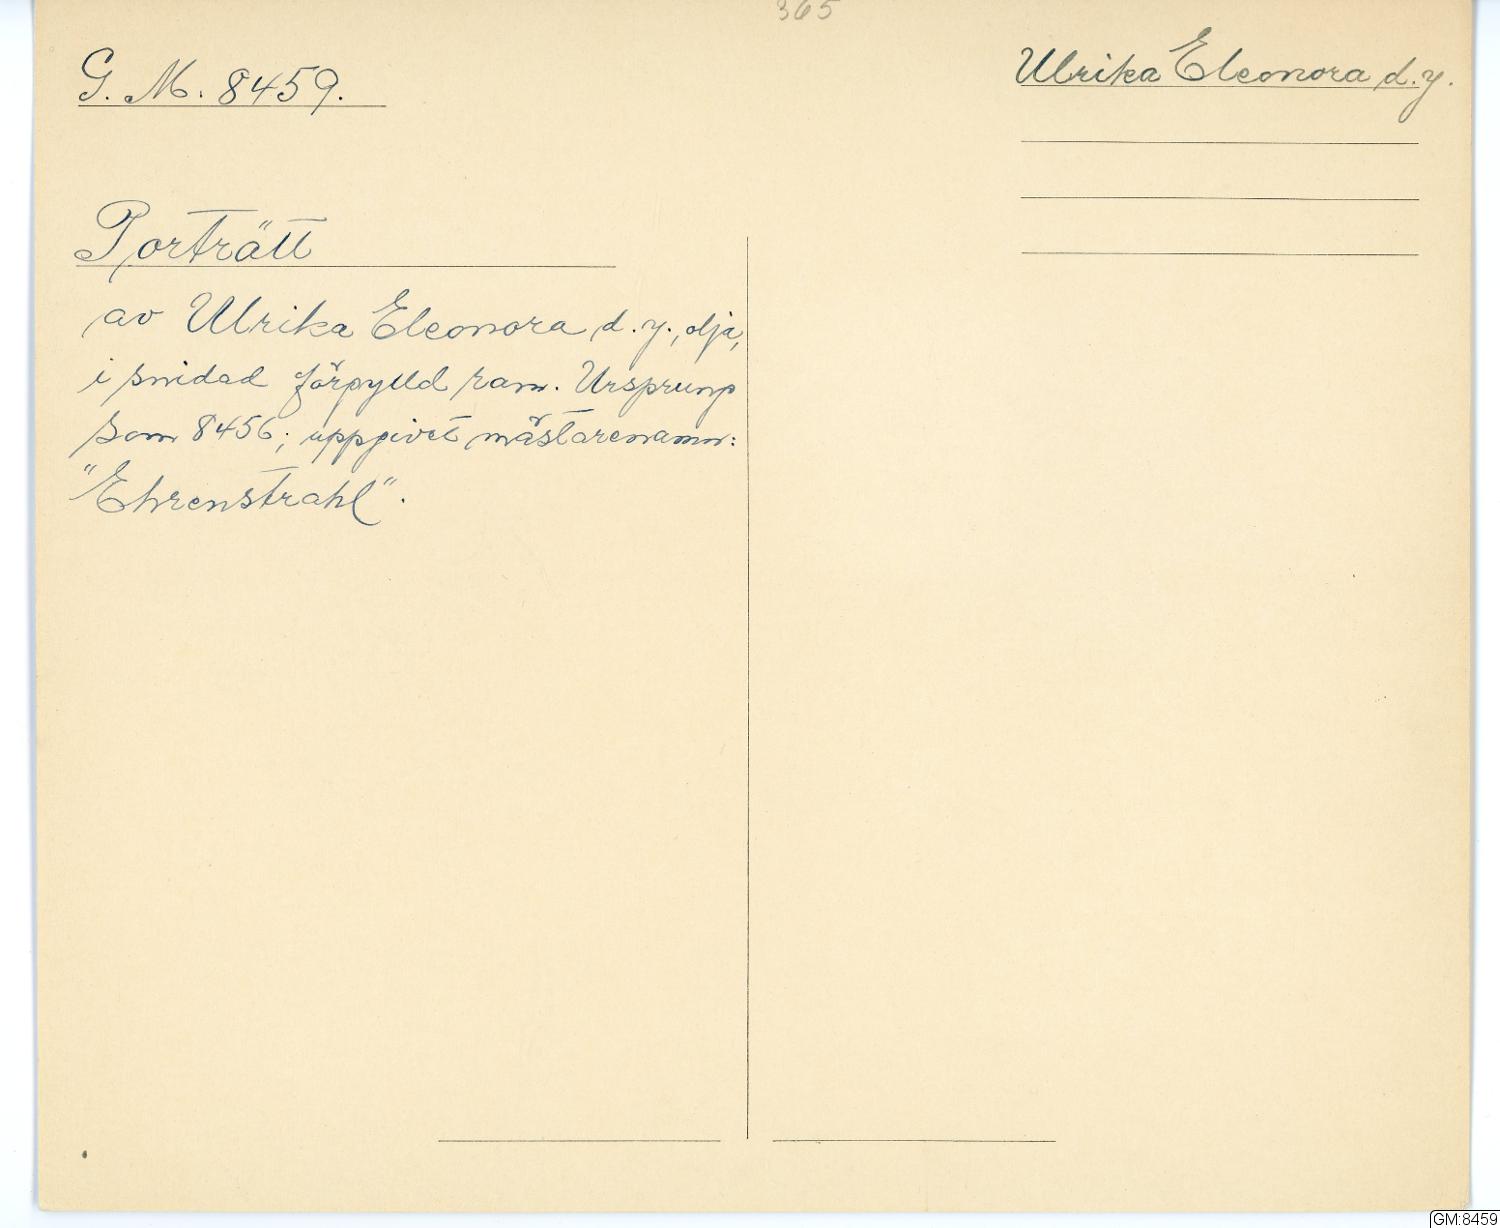 365
G. M. 8459.
Ulrika Eleonora d.y.
Porträtt
av Ulrika Eleonora d.y., olja,
i snidad förgylld ram. Ursprung
som 8456; uppgivet mästarenamn:
"Ehrenstrahl".
GM:8459